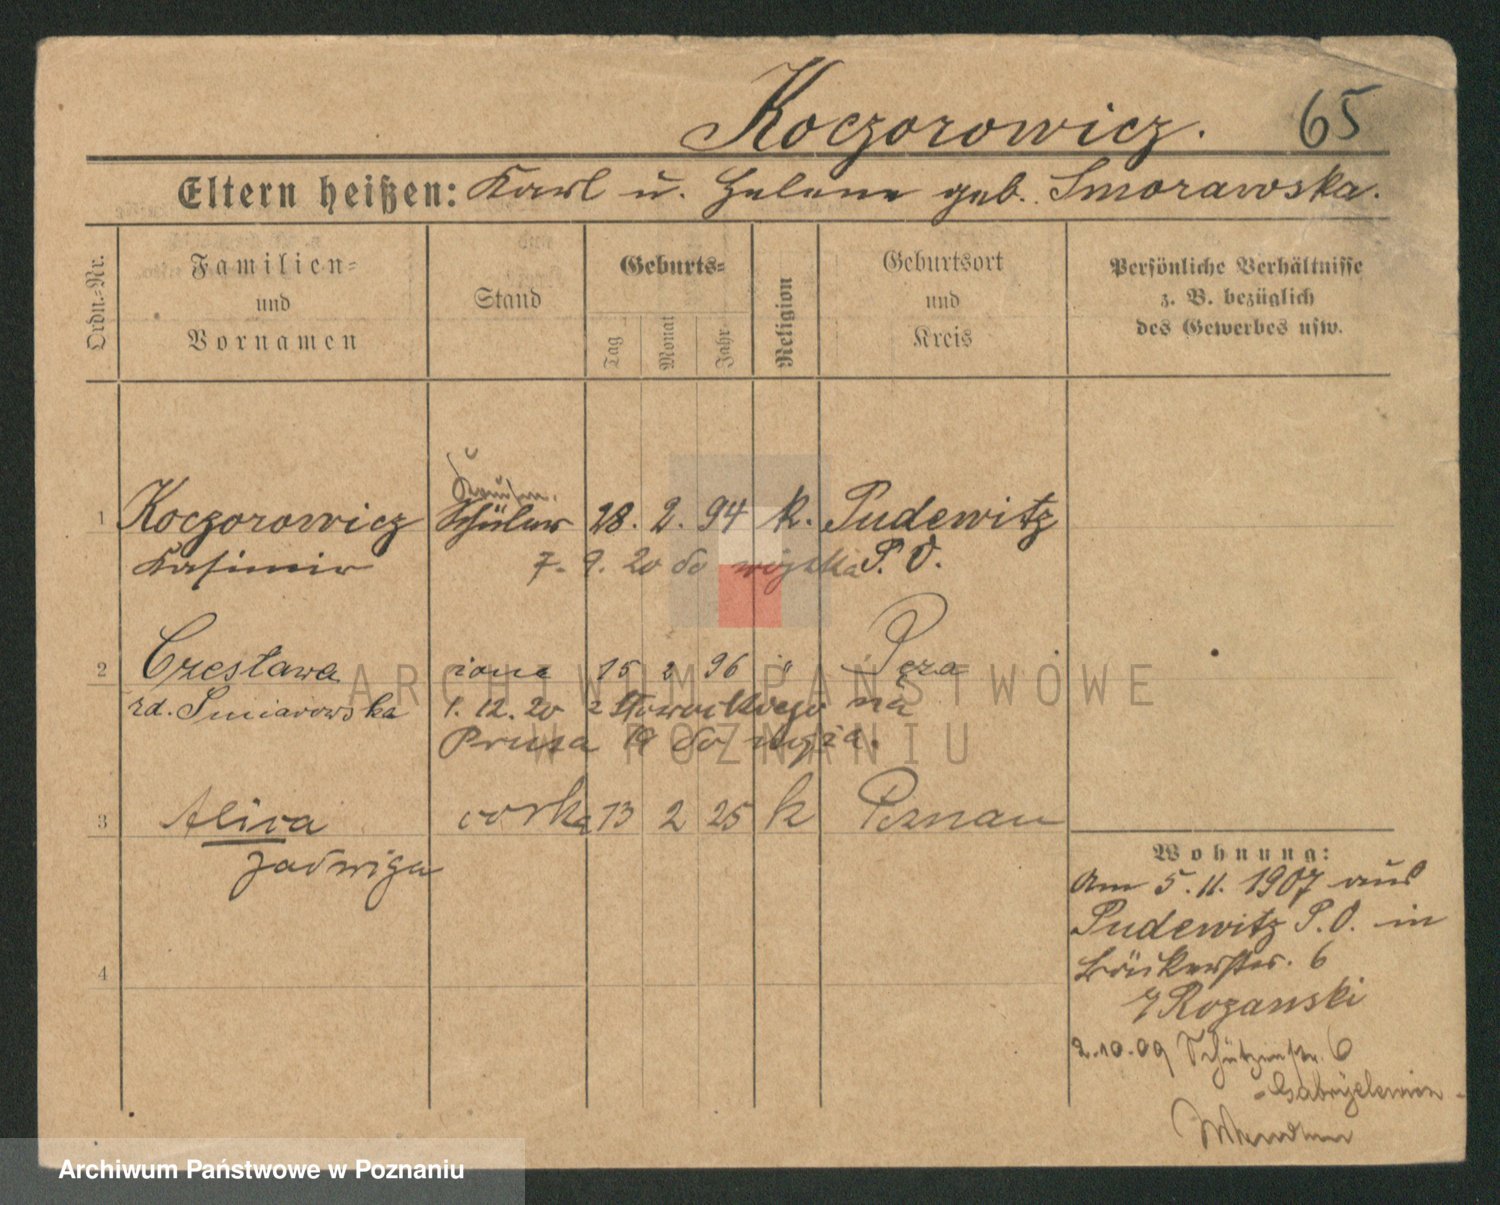 Koczorowicz. 65
Eltern heißen: Karl u. Helene geb. Smorawska.
Ordn.-Nr.
Familien-
und
Vornamen
Stand
Geburts-
Tag
Monat
Jahr
Religion
Geburtsort
und
Kreis
Persönliche Verhältnisse
z. B. bezüglich
des Gewerbes usw.
1 Koczorowicz Schüler 28. 2. 94 k. Pudewitz
Kasimir 7. 9. 20 do wojska P. O.
2 Czesława żona 15 2 96 "
zd. Smiarowska 1. 12. 20 z Słowackiego na
Prusa 19 do męża.
3 Alica córka 13 2 25 k Poznań
Jadwiga
4
Wohnung:
Am 5. 11. 1907 aus
Pudewitz P. O. in
6
Rozanski
2.10.09 Schützenstr. 6
ARCHIWUM PAŃSTWOWE
W POZNANIU
Archiwum Państwowe w Poznaniu